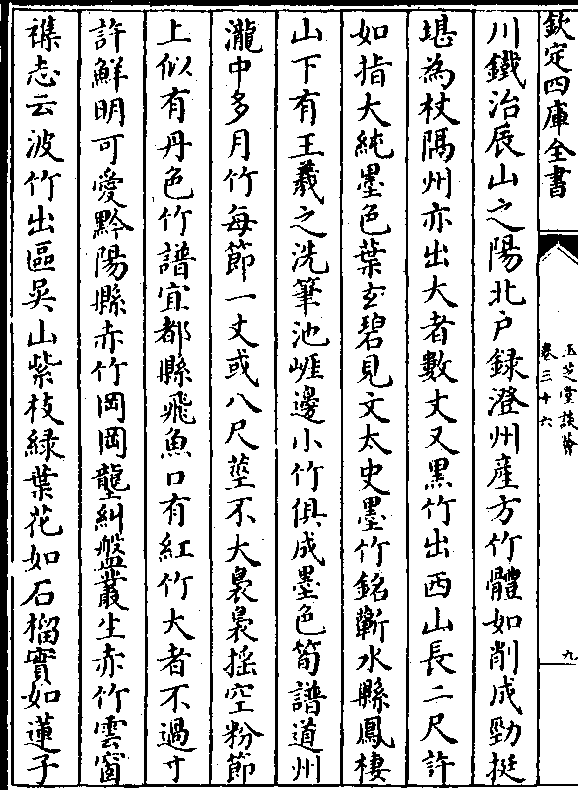 欽定四庫全書
玉芝堂談薈
卷三十六
九
川鐵冶展山之陽北户録澄州産方竹體如削成勁挺
堪為杖隅州亦出大者數丈又黒竹出西山長二尺許
如指大純墨色葉𤣥碧見文太史墨竹銘蘄水縣鳳棲
山下有王羲之洗筆池崕邊小竹俱成墨色筍譜道州
瀧中多月竹每節一丈或八尺莖不大裊裊揺空粉節
上似有丹色竹譜宜都縣飛魚口有紅竹大者不過寸
許鮮明可愛黔陽縣赤竹岡岡壟糾盤叢生赤竹雲窗
襍志云波竹出區吳山紫枝緑葉花如石榴實如蓮子